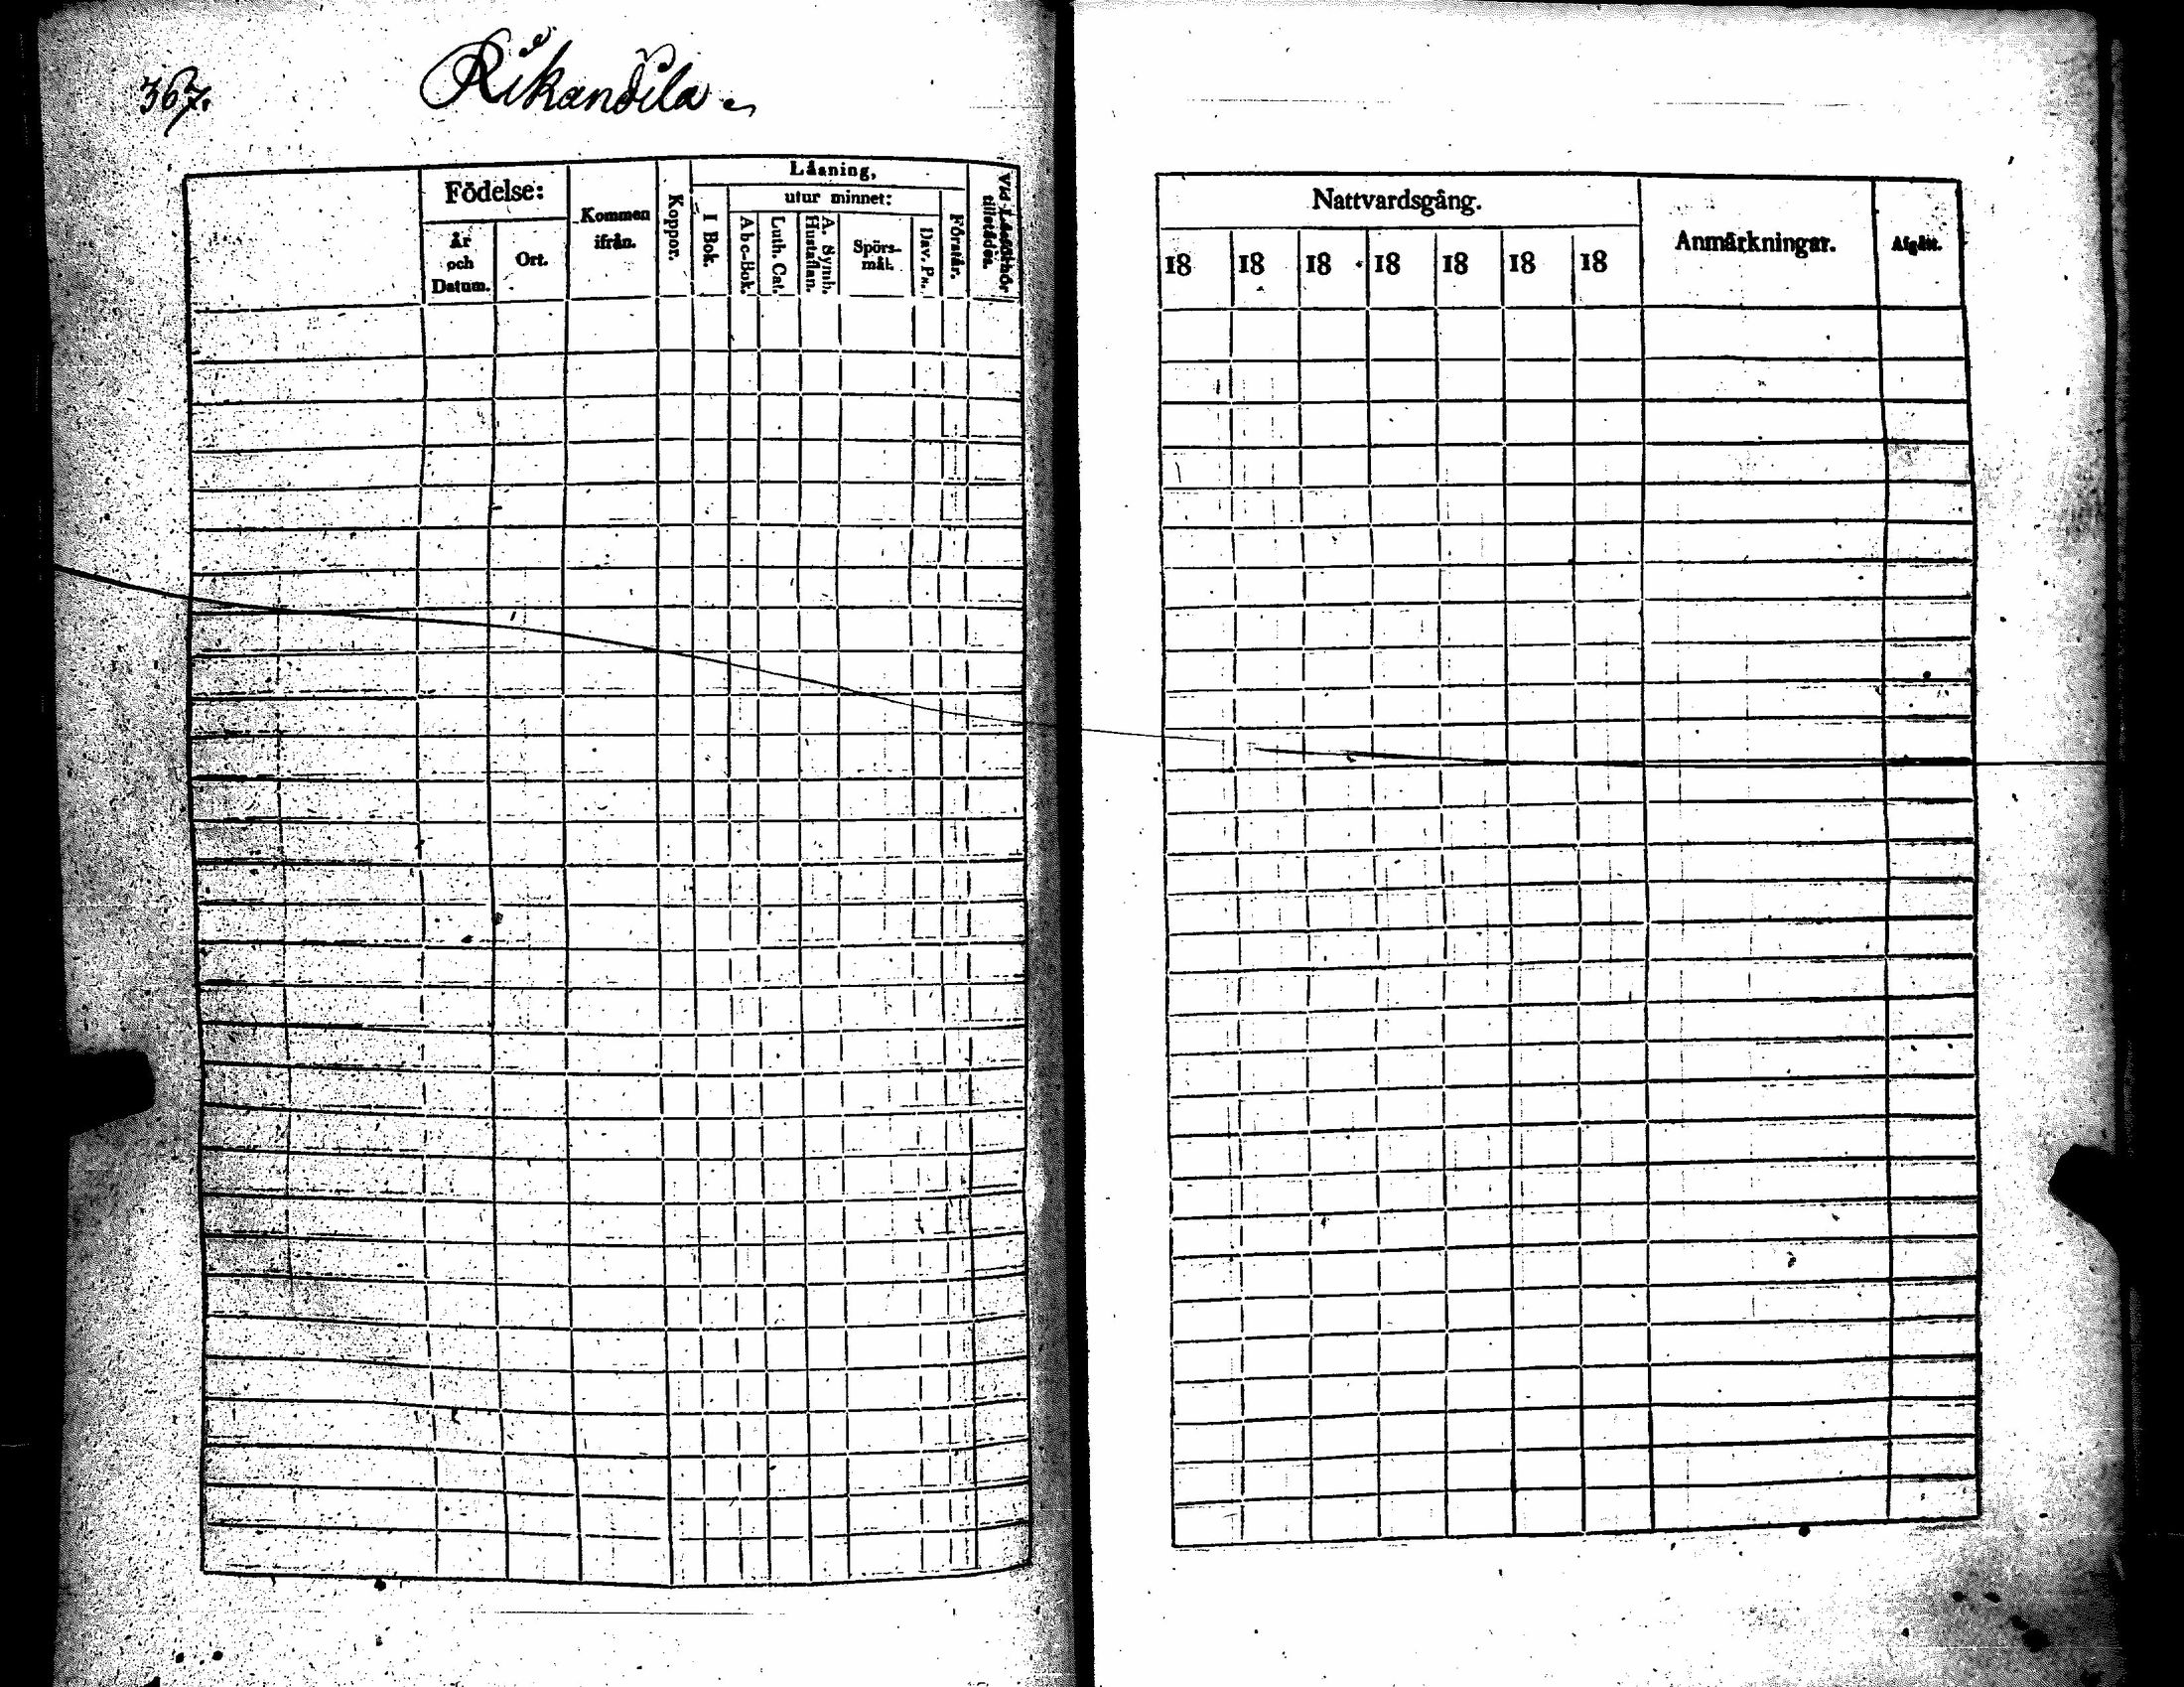 367.
Rikandila
Födelse:
År och Datum.
Ort.
Kommen ifrån.
Koppor.
Läsning,
I Bok.
utur minnet:
Abc-Bok.
Luth. Cat.
A. Symb. Hustaflan.
Spörsmål.
Dav. Ps.
Förstår.
Vid Läsförhör tillstädes.
Nattvardsgång.
18 18 18 18 18 18 18
Anmärkningar.
Afgått.